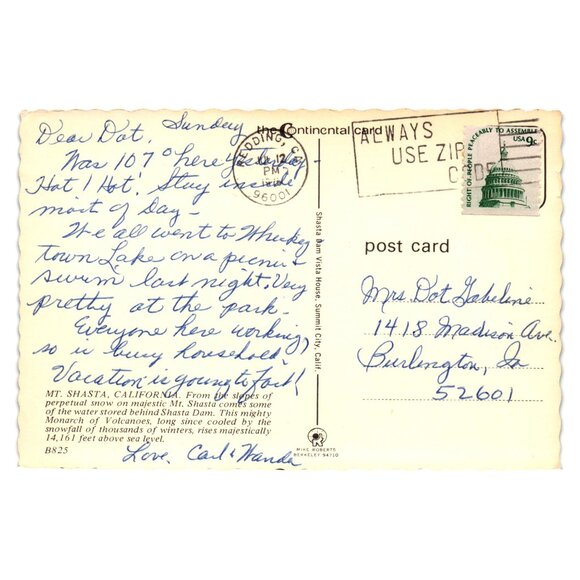 Dear Dot, Sunday
Was 107° here yesterday-
Hot! Hot! Stay inside
most of Day-
We all went to Whiskey
town Lake on a picnic &
swim last night. Very
pretty at the park.
Everyone here working,
so is busy household.
Vacation is going to fast!
MT. SHASTA, CALIFORNIA. From the slopes of
perpetual snow on majestic Mt. Shasta comes some
of the water stored behind Shasta Dam. This mighty
Monarch of Volcanoes, long since cooled by the
snowfall of thousands of winters, rises majestically
14,161 feet above sea level.
B825
Love, Carl & Wanda
the Continental card
Shasta Dam Vista House, Summit City, Calif.
MIKE ROBERTS
BERKELEY 94710
REDDING, CA
PM
96001
ALWAYS
USE ZIP
CODE
RIGHT OF PEOPLE PEACEABLY TO ASSEMBLE
USA 9c
post card
Mrs. Dot Gabeline
1418 Madison Ave.
Burlington, Ia
52601